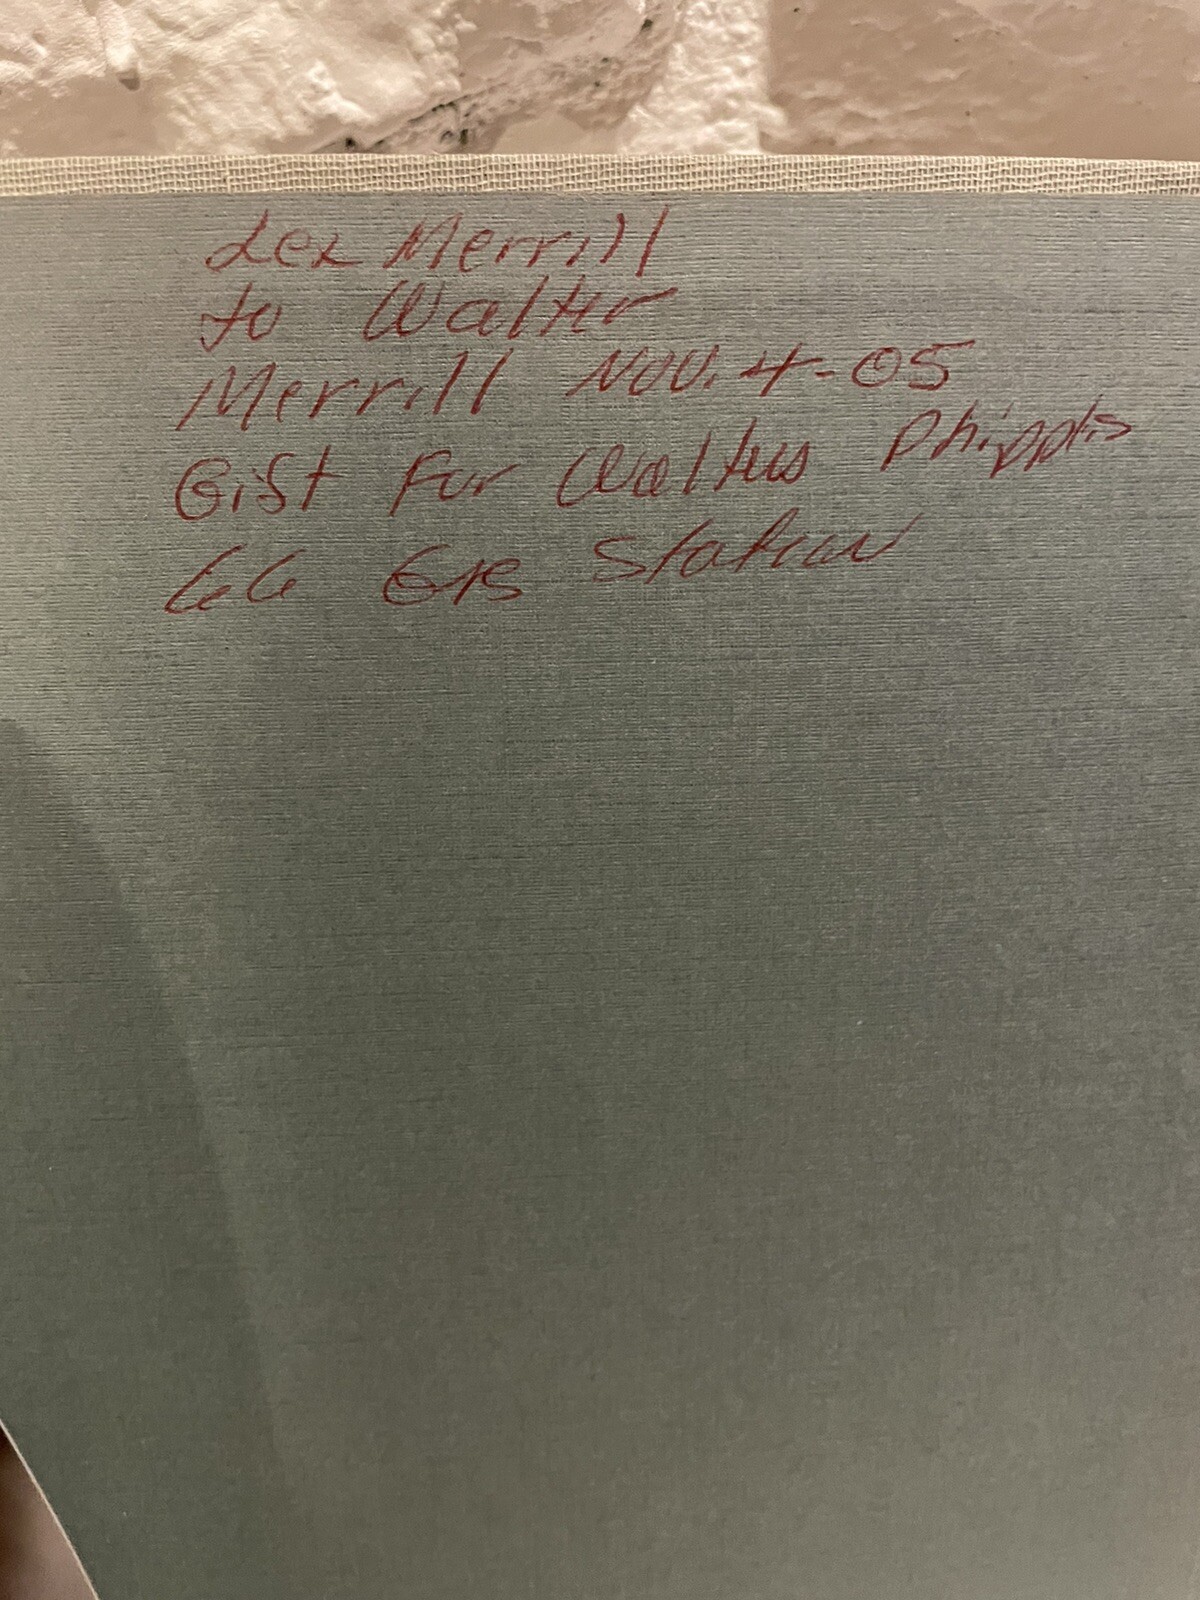 Lex Merrill
to Walter
Merrill Nov. 4-05
Gift For Walters Phipps
66 Gas Station